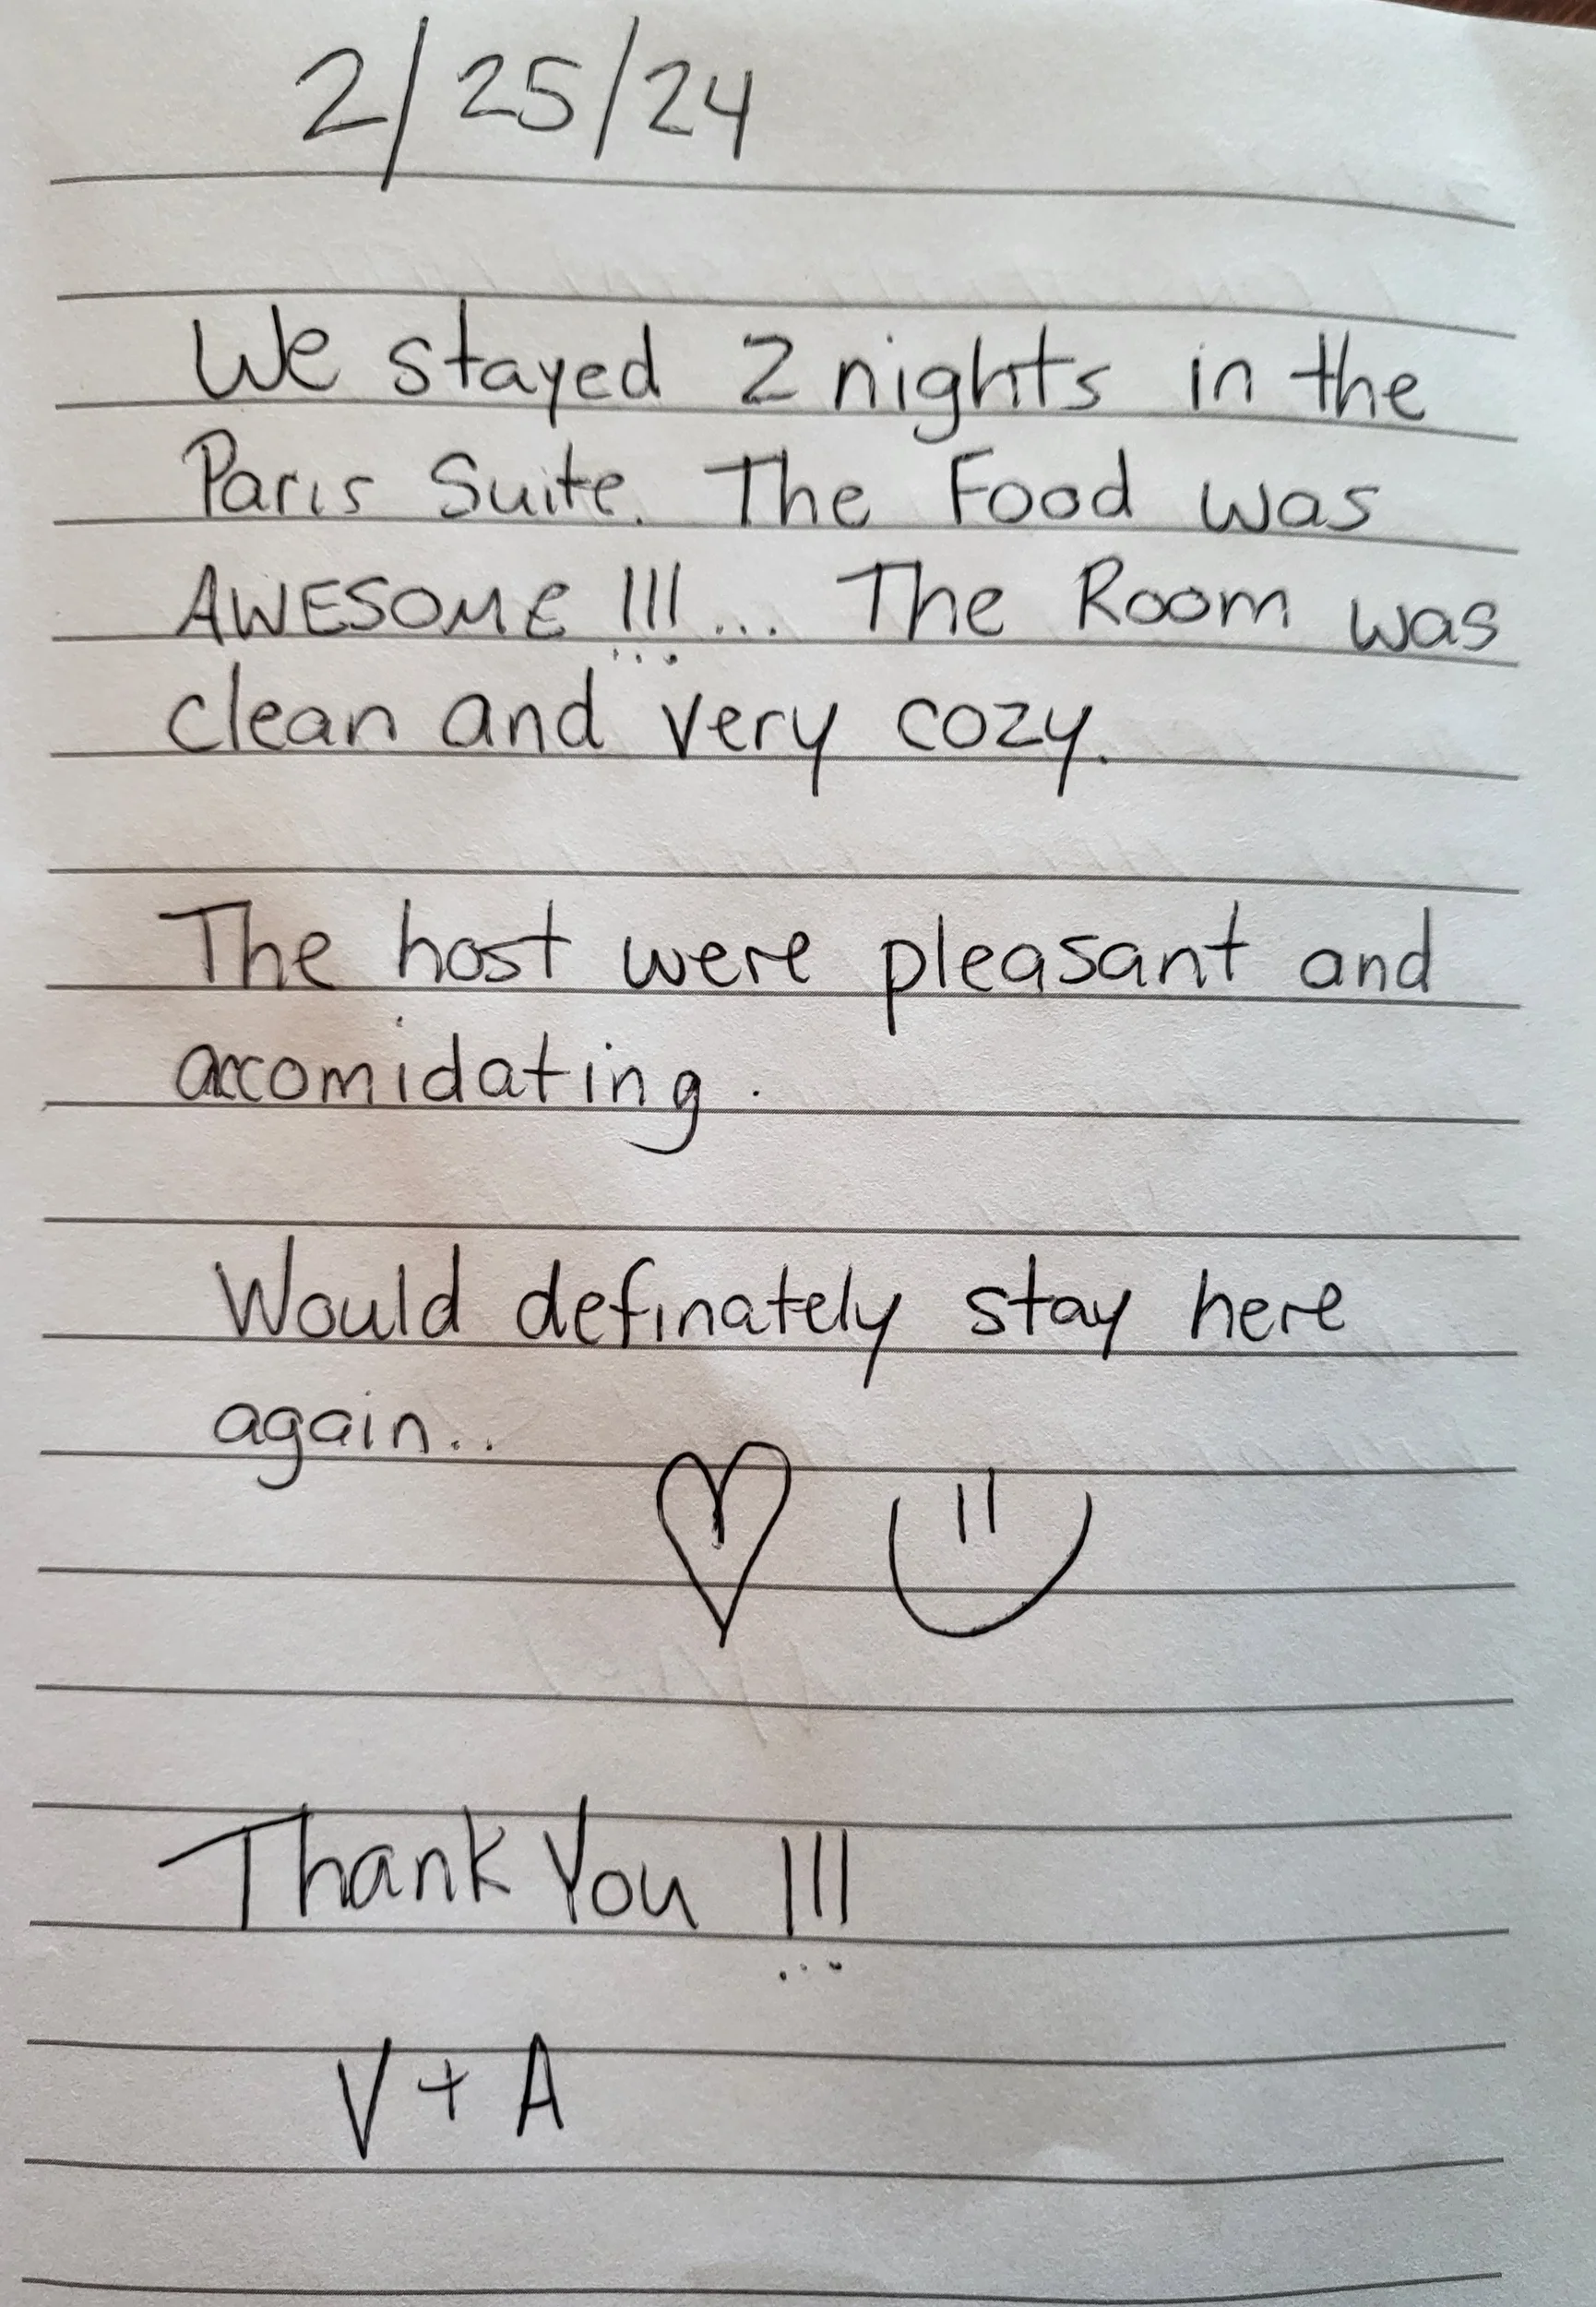 2/25/24
We stayed 2 nights in the
Paris Suite. The Food was
AWESOME !!!... The Room was
clean and very cozy.
The host were pleasant and
accomidating.
Would definately stay here
again..
Thank You !!!
V + A